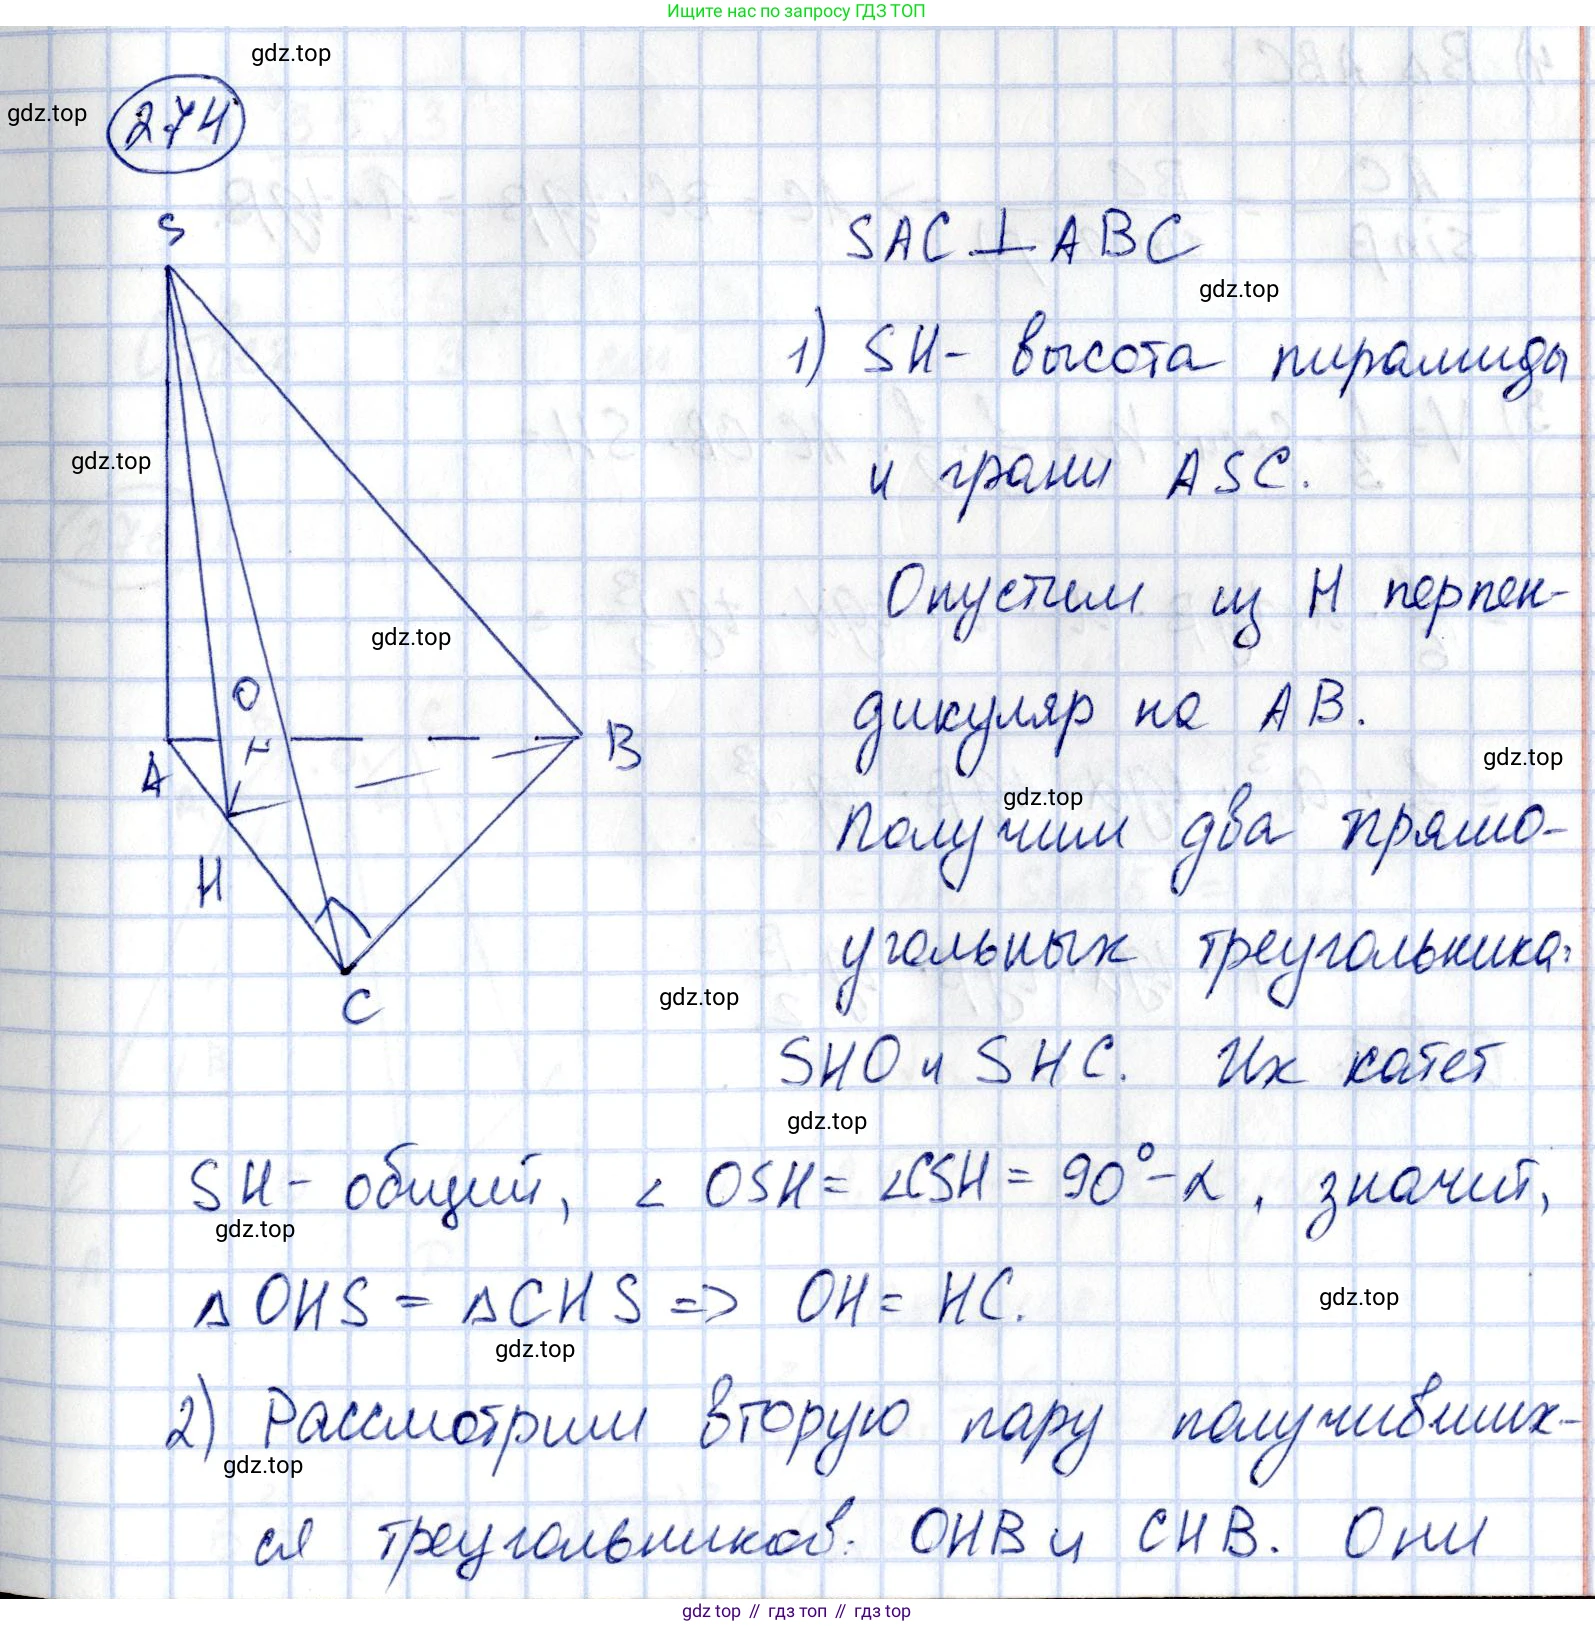 Ищите нас по запросу ГДЗ ТОП
gdz.top
gdz.top
274
S
SAC ⊥ ABC
gdz.top
1) SH - высота пирамиды
gdz.top
и грани ASC.
Опустим из H перпен-
gdz.top
O
дикуляр на AB.
A
B
gdz.top
gdz.top
Получим два прямо-
H
угольных треугольника:
C
gdz.top
SHO и SHC. Их катет
gdz.top
SH - общий, ∠ OSH = ∠CSH = 90° - α, значит,
gdz.top
△ OHS = △ CHS => OH = HC.
gdz.top
gdz.top
2) Рассмотрим вторую пару получивших-
gdz.top
ся треугольников: OHB и CHB. Они
gdz top // гдз топ // gdz.top